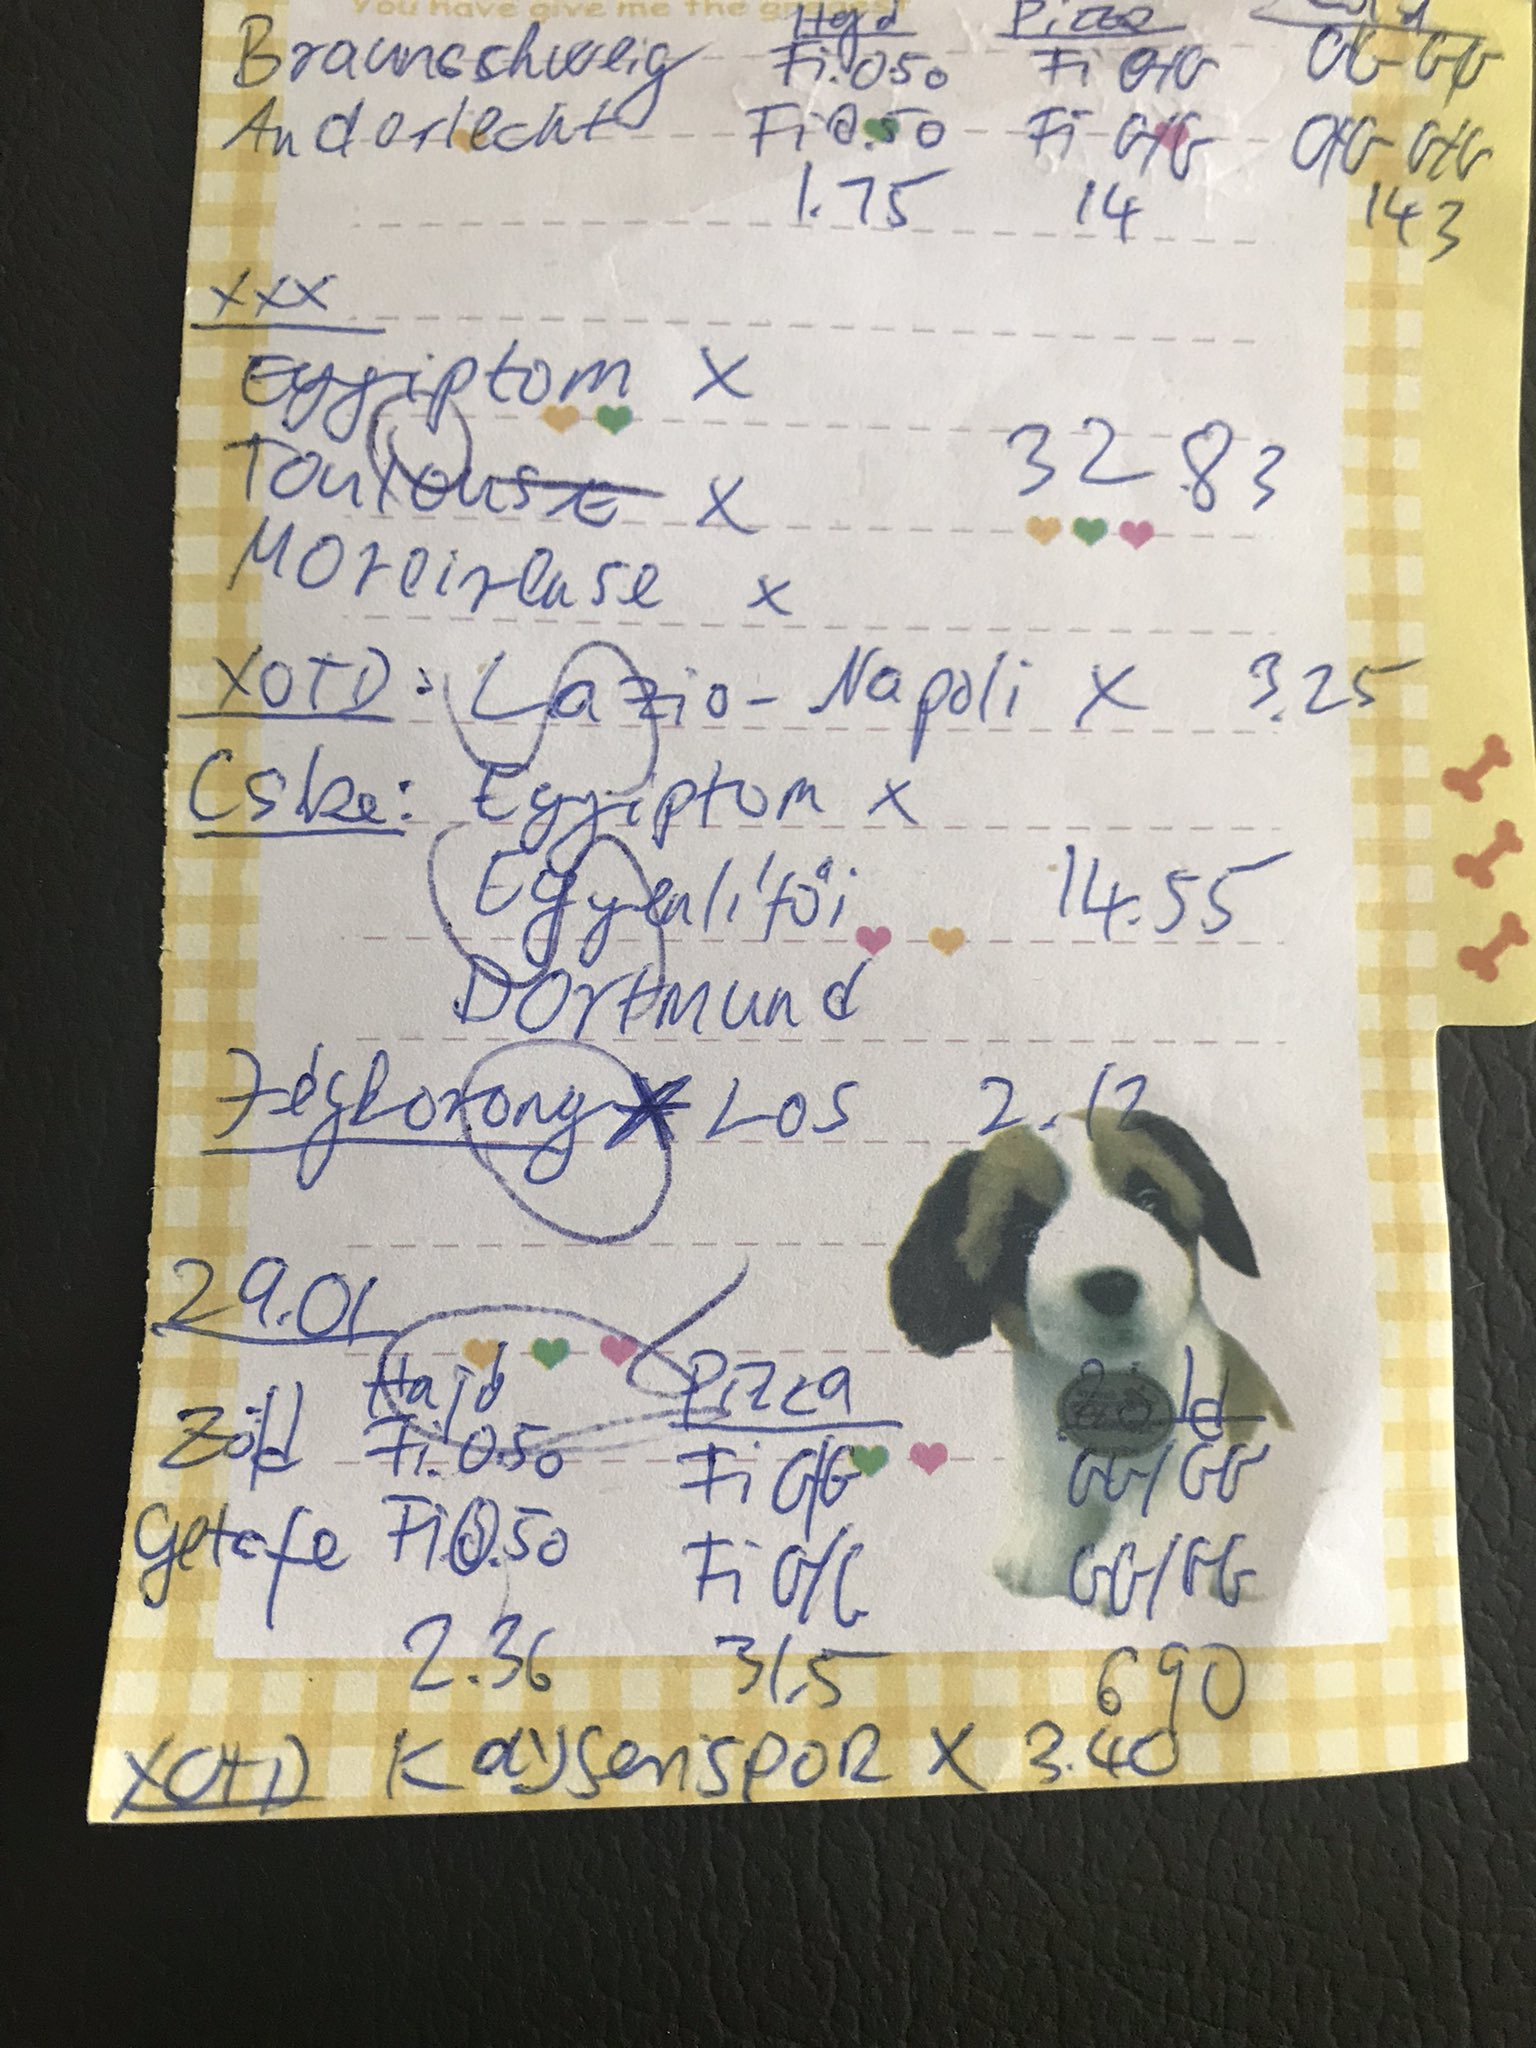 You have give me the greatest
Hajd Pizza
Braunsschweig Fi.050 Fi G/G GG-GG
Anderlecht Fi0.50 Fi G/G G/G-G/G
1.75 14 143
XXX
Eggiptom X
Toulouse X 32.83
Moreirense X
XOTD: Lazio-Napoli X 3.25
Cske: Eggiptom X
Eggenlítői 14.55
Dortmund
Jégkorong X LOS 2.12
29.01
Hajd Pizza
Zöld Fi.0.50 Fi G/G GG/GG
Getafe Fi0.50 Fi G/G GG/GG
2.36 31.5 690
XOTD KaysenispoR X 3.40